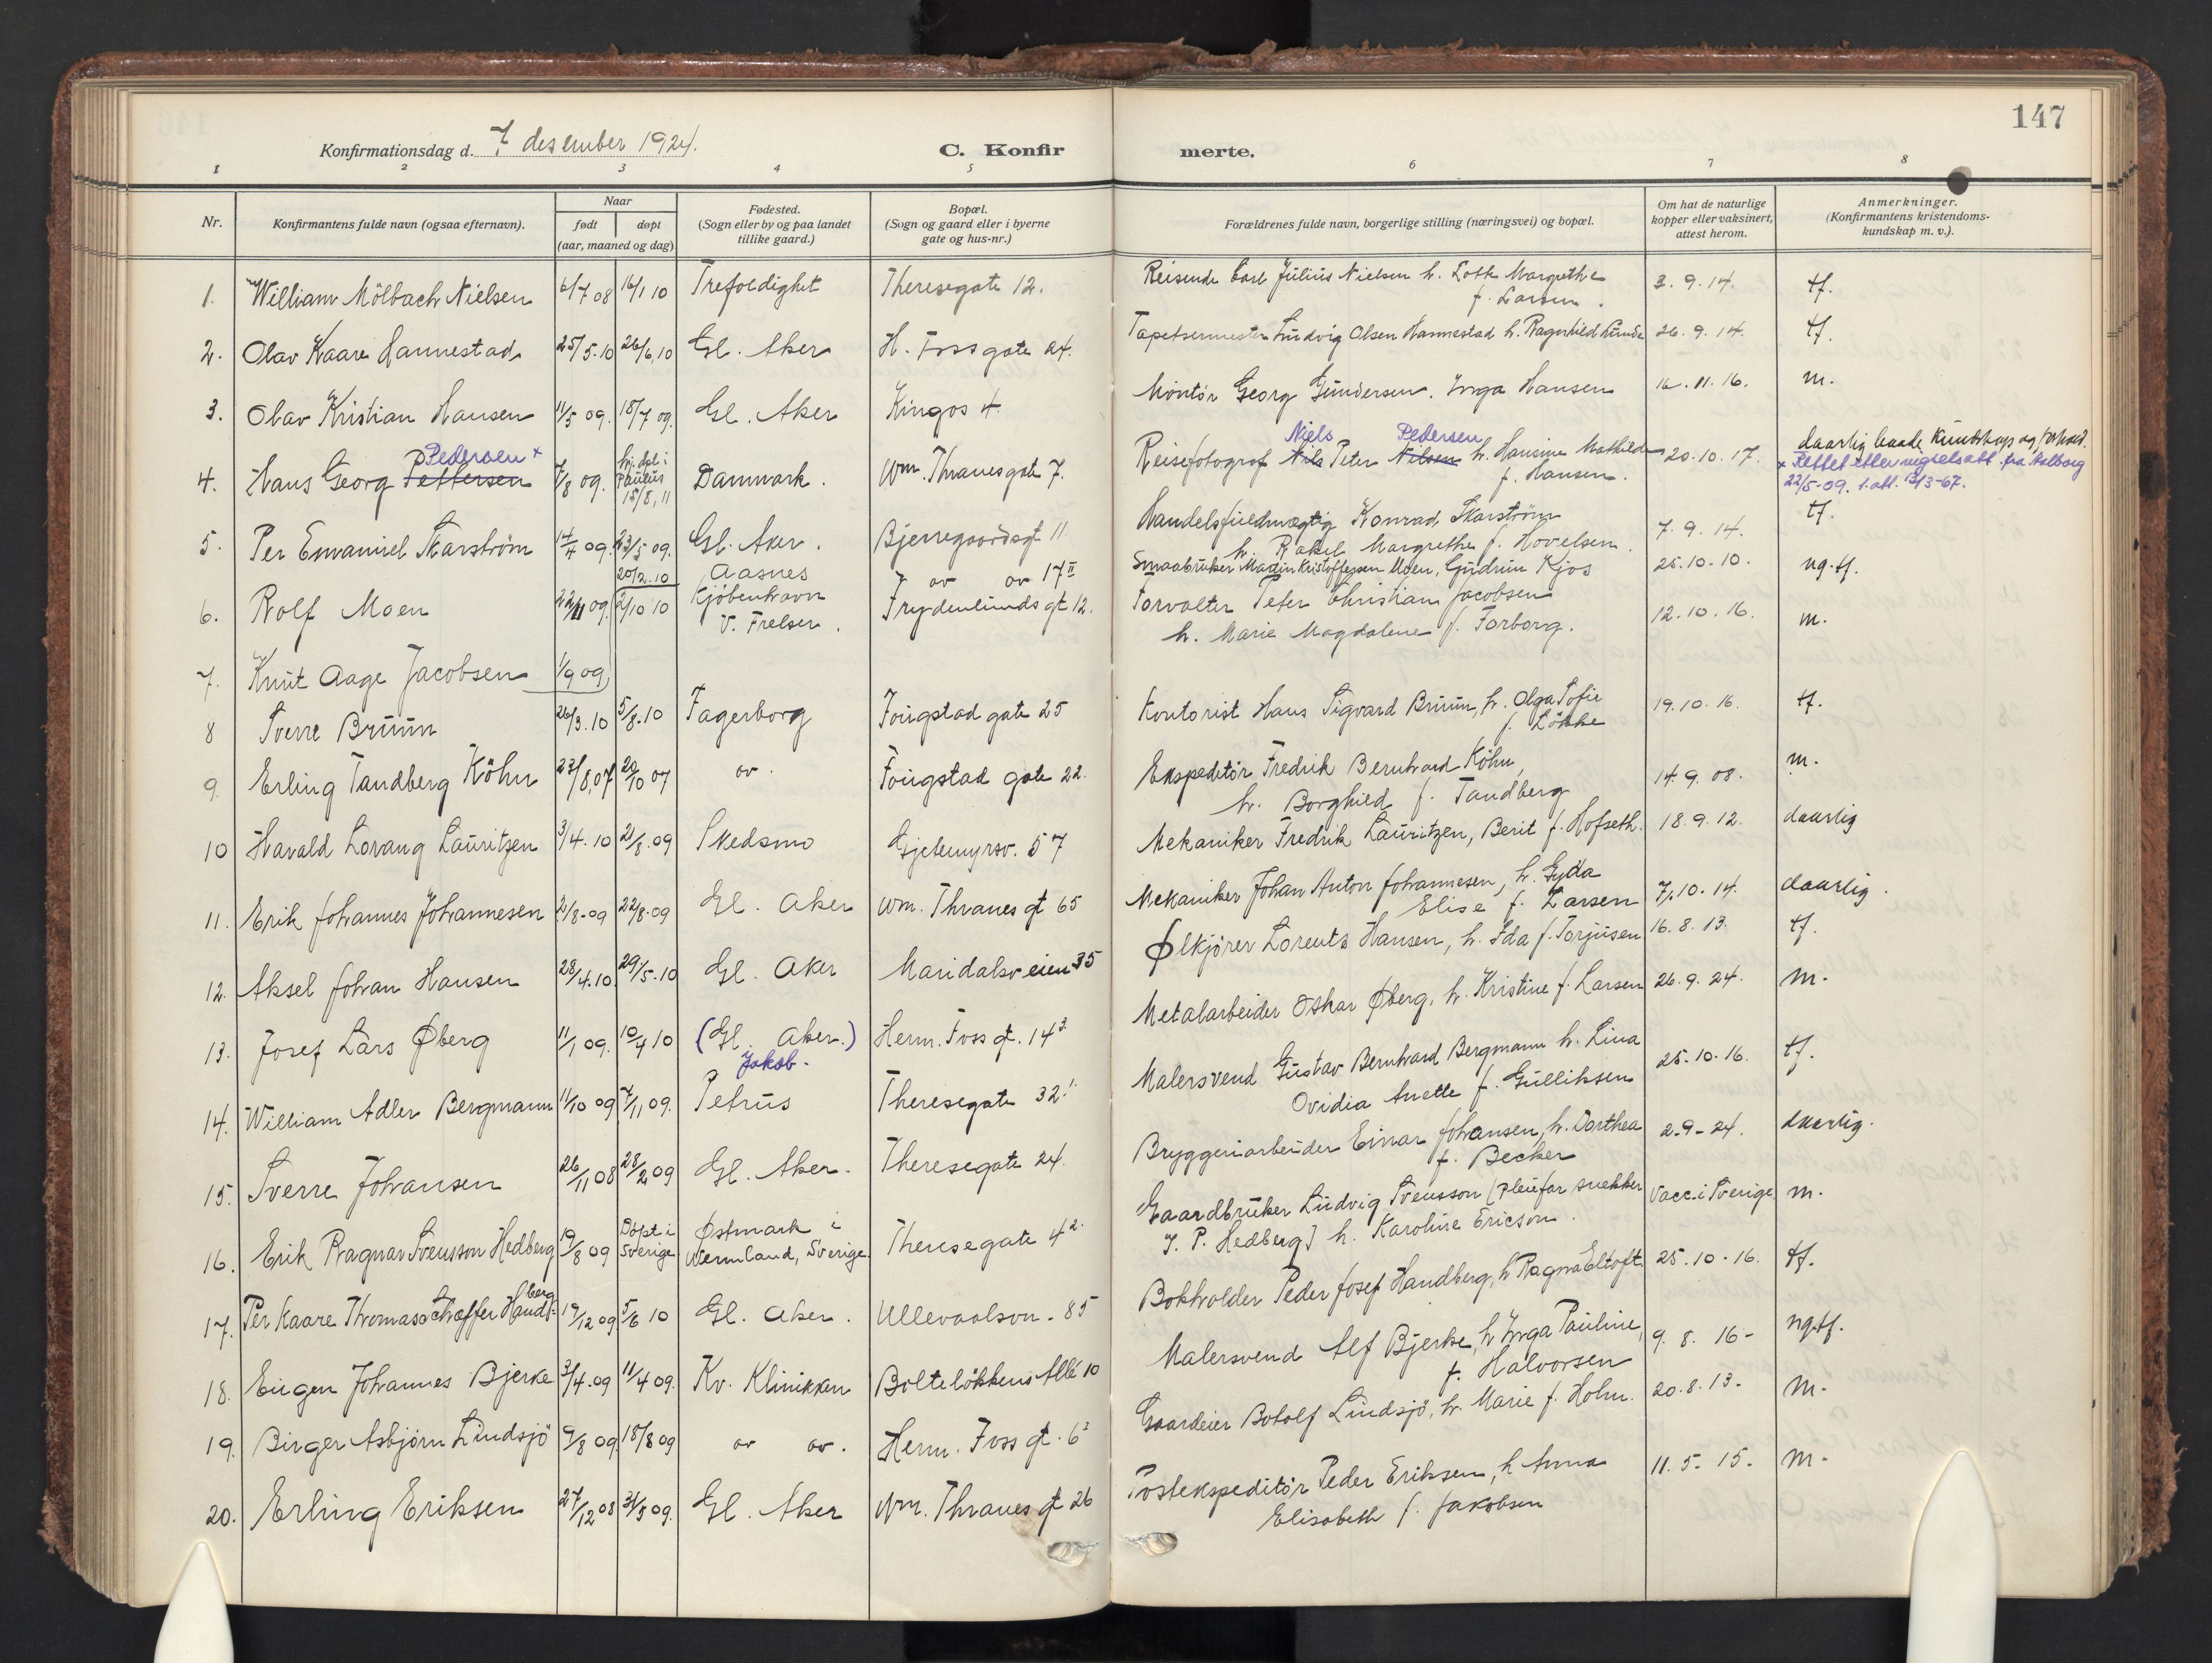 147
Konfirmationsdag d. 7 desember 1924.
C. Konfirmerte.
1 2 3 4 5 6 7 8
Nr.
Konfirmantens fulde navn (ogsaa efternavn).
Naar
født døpt
(aar, maaned og dag)
Fødested.
(Sogn eller by og paa landet
tillike gaard.)
Bopæl.
(Sogn og gaard eller i byerne
gate og hus-nr.)
Forældrenes fulde navn, borgerlige stilling (næringsvei) og bopæl.
Om hat de naturlige
kopper eller vaksinert,
attest herom.
Anmerkninger.
(Konfirmantens kristendoms-
kundskap m. v.).
1. William Mölbach Nielsen 6/7 08 16/1 10 Trefoldighet Theresegate 12. Reisende Carl Julius Nielsen h. Lotte Margrethe 3. 9. 14. tf.
f. Larsen.
2. Olav Kaare Hannestad 25/5. 10 26/6, 10 Gl. Aker H. Fossgate 24. Tapetsermester Ludvig Olsen Hannestad h. Ragnhild Lunde 26. 9. 14. tf.
3. Olav Kristian Hansen 11/5 09. 18/7 09. Gl. Aker Kingos 4. Montör Georg Gundersen. Inga Hansen 16. 11. 16. m.
Pedersen +
Niels Pedersen
4. Hans Georg Pettersen 7/8 09. hj. dpt i Paulus 15/8, 11 Danmark. Wm. Thranesgate 7. Reisefotograf Nils Peter Nilsen h. Hansine Mathilde 20. 10. 17. daarlig baade kundskap og forhold.
f. Hansen.
+ Rettet etter vigselsatt. fra Aalborg
22/5-09. 1. att. 13/3-67.
5. Per Emanuel Skarström 14/4 09. 23/5 09. Gl. Aker. Bjerregaardsgt 11. Handelsfuldmægtig Konrad Skarström 7. 9. 14. tf.
h. Rakel Margrethe f. Hovelsen.
20/2. 10 Aasnes J av av 17 II Smaabruker Martin Kristoffersen Moen, Gudrun Kjos 25. 10. 10. ng. tf.
6. Rolf Moen 22/11 09. 2/10 10 Kjöbenhavn Frydenlunds gt 12. Forvalter Peter Christian Jacobsen 12. 10. 16. m.
V. Frelser.
h. Marie Magdalene f. Farborg.
7. Knut Aage Jacobsen 1/9 09
8 Sverre Bruun 26/3. 10 5/8. 10 Fagerborg Fougstad gate 25 Kontorist Hans Sigvard Bruun, h. Olga Sofie 19. 10. 16. tf.
f. Lökke
9. Erling Tandberg Köhn 23/8, 07 20/10 07 av. Fougstad gate 22. Ekspeditör Fredrik Bernhard Köhn, 14. 9. 08. m.
h. Borghild f. Tandberg
10 Havald Lorang Lauritzen 3/4. 10 21/8. 09 Skedsmo Gjetemyrsv. 57 Mekaniker Fredrik Lauritzen, Berit f. Hofseth. 18. 9. 12. daarlig
11. Erik Johannes Johannesen 2/8-09 22/8-09 Gl. Aker Wm. Thranes gt 65 Mekaniker Johan Anton Johannesen, h. Gyda 7. 10. 14. daarlig.
Elise f. Larsen
12. Aksel Johan Hansen 28/4. 10. 29/5-10 Gl. Aker Maridalsveien 35 Ølkjörer Lorents Hansen, h. Ida f. Torjusen 16. 8. 13. tf.
13. Josef Lars Øberg 11/1 09. 10/4 10 (Gl. Aker.) Herm. Foss gt. 14 3. Metalarbeider Oskar Øberg, h. Kristine f. Larsen 26. 9. 24. m.
Jakob.
14. William Adler Bergmann 11/10 09 7/11 09. Petrus Theresegate 32 1. Malersvend Gustav Bernhard Bergmann h. Lina 25. 10. 16. tf.
Ovidia Anette f. Gulliksen
15. Sverre Johansen 26/11 08 28/2 09 Gl. Aker. Theresegate 24. Bryggeriarbeider Einar Johansen, h. Dorthea 2-9-24. daarlig.
f. Becker
16. Erik Ragnar Svensson Hedberg 19/8 09 Döpt i Sverige Østmark i Wermland, Sverige. Theresegate 4 2. Gaardbruker Ludvig Svensson (Pleiefar snekker Vacc. i Sverige m.
J. P. Hedberg) h. Karoline Ericson.
17. Per Kaare Thomas Schæffer Handberg 19/12 09 5/6 10 Gl. Aker. Ullevaalsvn. 85 Bokholder Peder Josef Handberg, h. Ragna Eltoft 25. 10. 16. tf.
18. Eugen Johannes Bjerke 3/4-09 11/4 09. Kv. Klinikken Bolteløkkens Allé 10 Malersvend Alf Bjerke, h. Inga Pauline, 9. 8. 16- ng. tf.
f. Halvorsen
19. Birger Asbjörn Lindsjö 9/8 09. 18/8 09 av av. Herm. Foss gt. 6 2 Gaardeier Botolf Lindsjö, h. Marie f. Holm. 20. 8. 13. m.
20. Erling Eriksen 27/12 08 31/3 09. Gl. Aker Wm. Thranes gt 26 Postekspeditör Peder Eriksen, h Anna 11. 5. 15. m.
Elisabeth f. Jakobsen